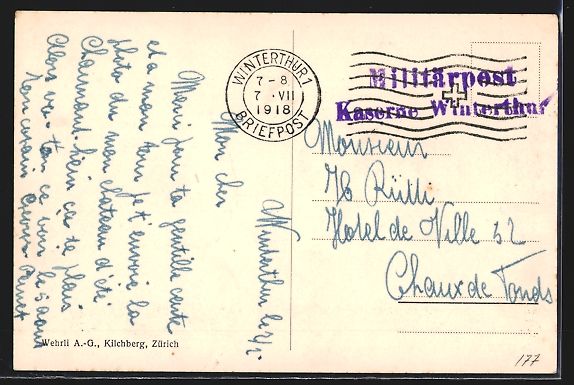 WINTERTHUR 1
7-8
7. VII
1918
BRIEFPOST
Militärpost
Kaserne Winterthur
Monsieur
Hotel de Ville 32
Chaux de Fonds
Winterthur le
Mon cher
Merci pour ta gentille carte
et à mon tour je t'envoie la
photo de mon chateau d'été
Charmant hein ça te plais
Wehrli A.-G., Kilchberg, Zürich
177